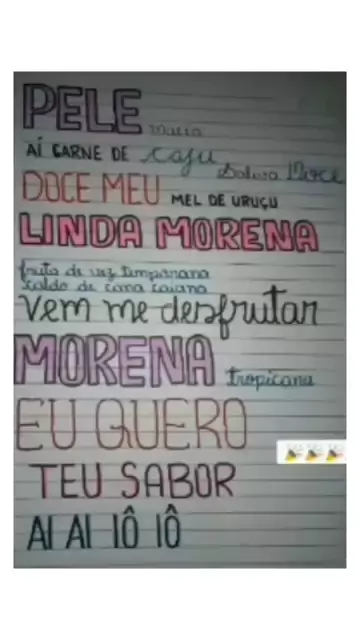 PELE macia
AÍ CARNE DE caju
Saliva Doce
DOCE MEU MEL DE URUÇU
LINDA MORENA
fruta de vez temporana
caldo de cana caiana
vem me desfrutar
MORENA tropicana
EU QUERO
TEU SABOR
AI AI IÔ IÔ